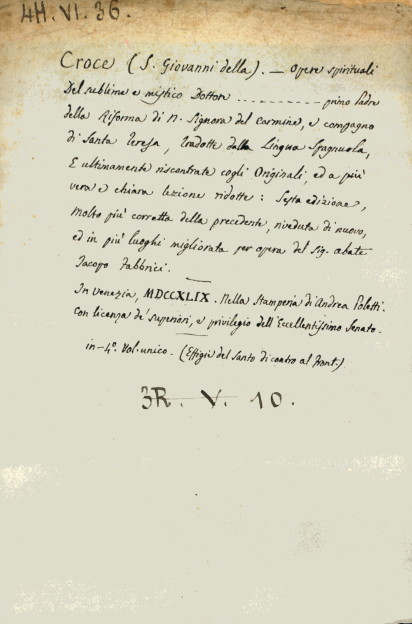 4H. VI. 36.
Croce (S. Giovanni della). — Opere spirituali
Del sublime e mistico Dottore .......... primo Padre
della Riforma di N. Signora del Carmine, e compagno
di Santa Teresa, tradotte dalla Lingua Spagnuola,
E ultimamente riscontrate cogli Originali, ed a più
vera e chiara lezione ridotte: Sesta edizione,
molto più corretta della precedente, riveduta di nuovo,
ed in più luoghi migliorata per opera del Sig. abate
Jacopo Fabbrici.
In Venezia, MDCCXLIX. Nella Stamperia di Andrea Poletti.
Con licenza de' Superiori, e privilegio dell'Eccellentissimo Senato.
in-4°. Vol. unico. (Effigie del Santo di contro al front.)
3R. V. 10.